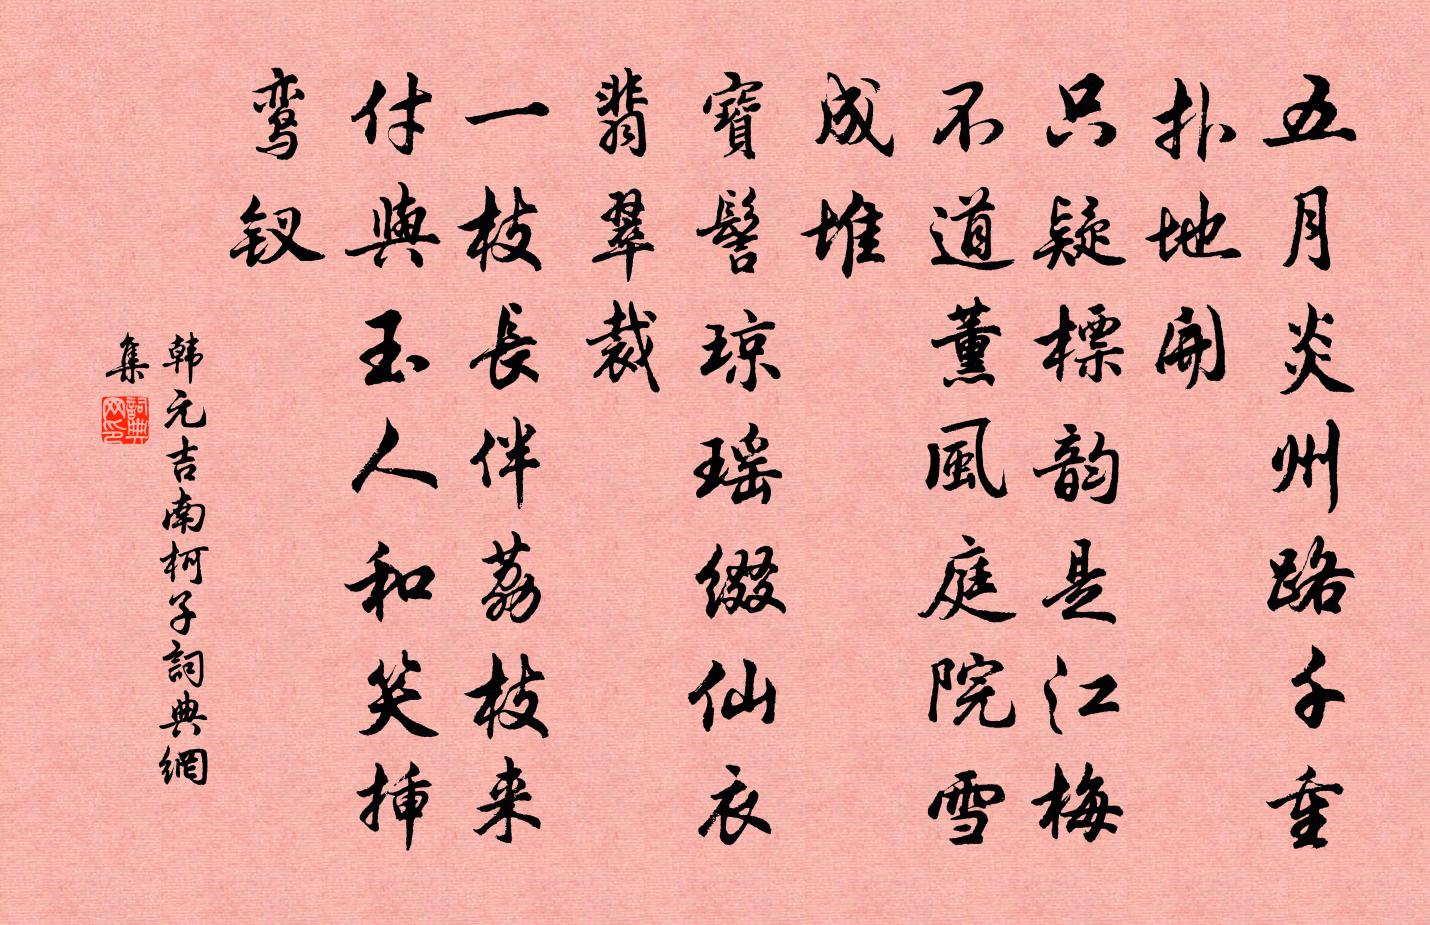 五月炎州路千重
扑地開
只疑標韵是江梅
不道薰風庭院雪
成堆
寶髻琼瑶缀仙衣
翡翠裁
一枝長伴荔枝来
付與玉人和笑插
鸾钗
韩元吉南柯子詞典網
集
詞典网印